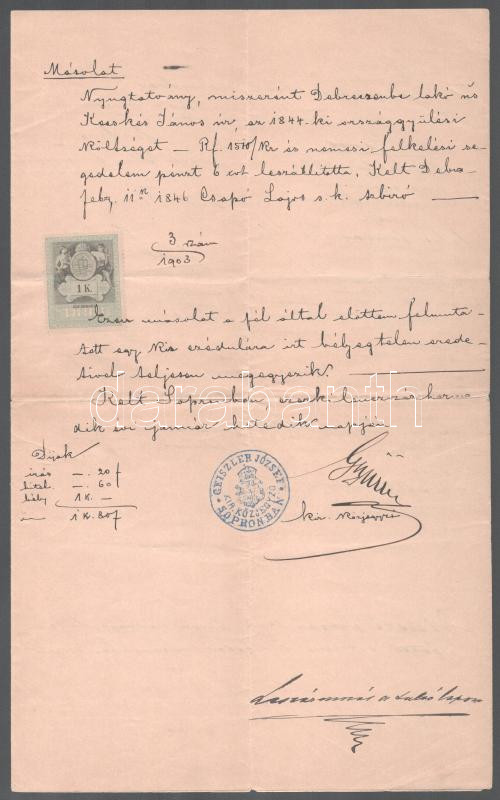 Másolat
Nyugtatvány, miszerént Debreczenbe lakó
Kecskés János úr, az 1844-ki országgyűlési
költséget — Rf. és nemesi felkelési se-
gedelem pénzt 6 leszállította. Kelt Debr.
11 1846 Csapó Lajos s. k. adszbiró
3 szám
1903
1 K.
Ezen másolat a fél által előttem felmuta-
tott egy kis czédulára irt bélyegtelen erede-
tivel teljesen megegyezik.
Kelt Sopronban ezerkilenczszázharma-
dik évi január hetedik napján.
Dijak
irás —. 20 f
hitel. —. 60 f
bély 1 K. —
1 K. 80 f
GEISZLER JÓZSEF
KIR. KÖZJEGYZŐ
SOPRONBAN
kir. közjegyző
darabanth